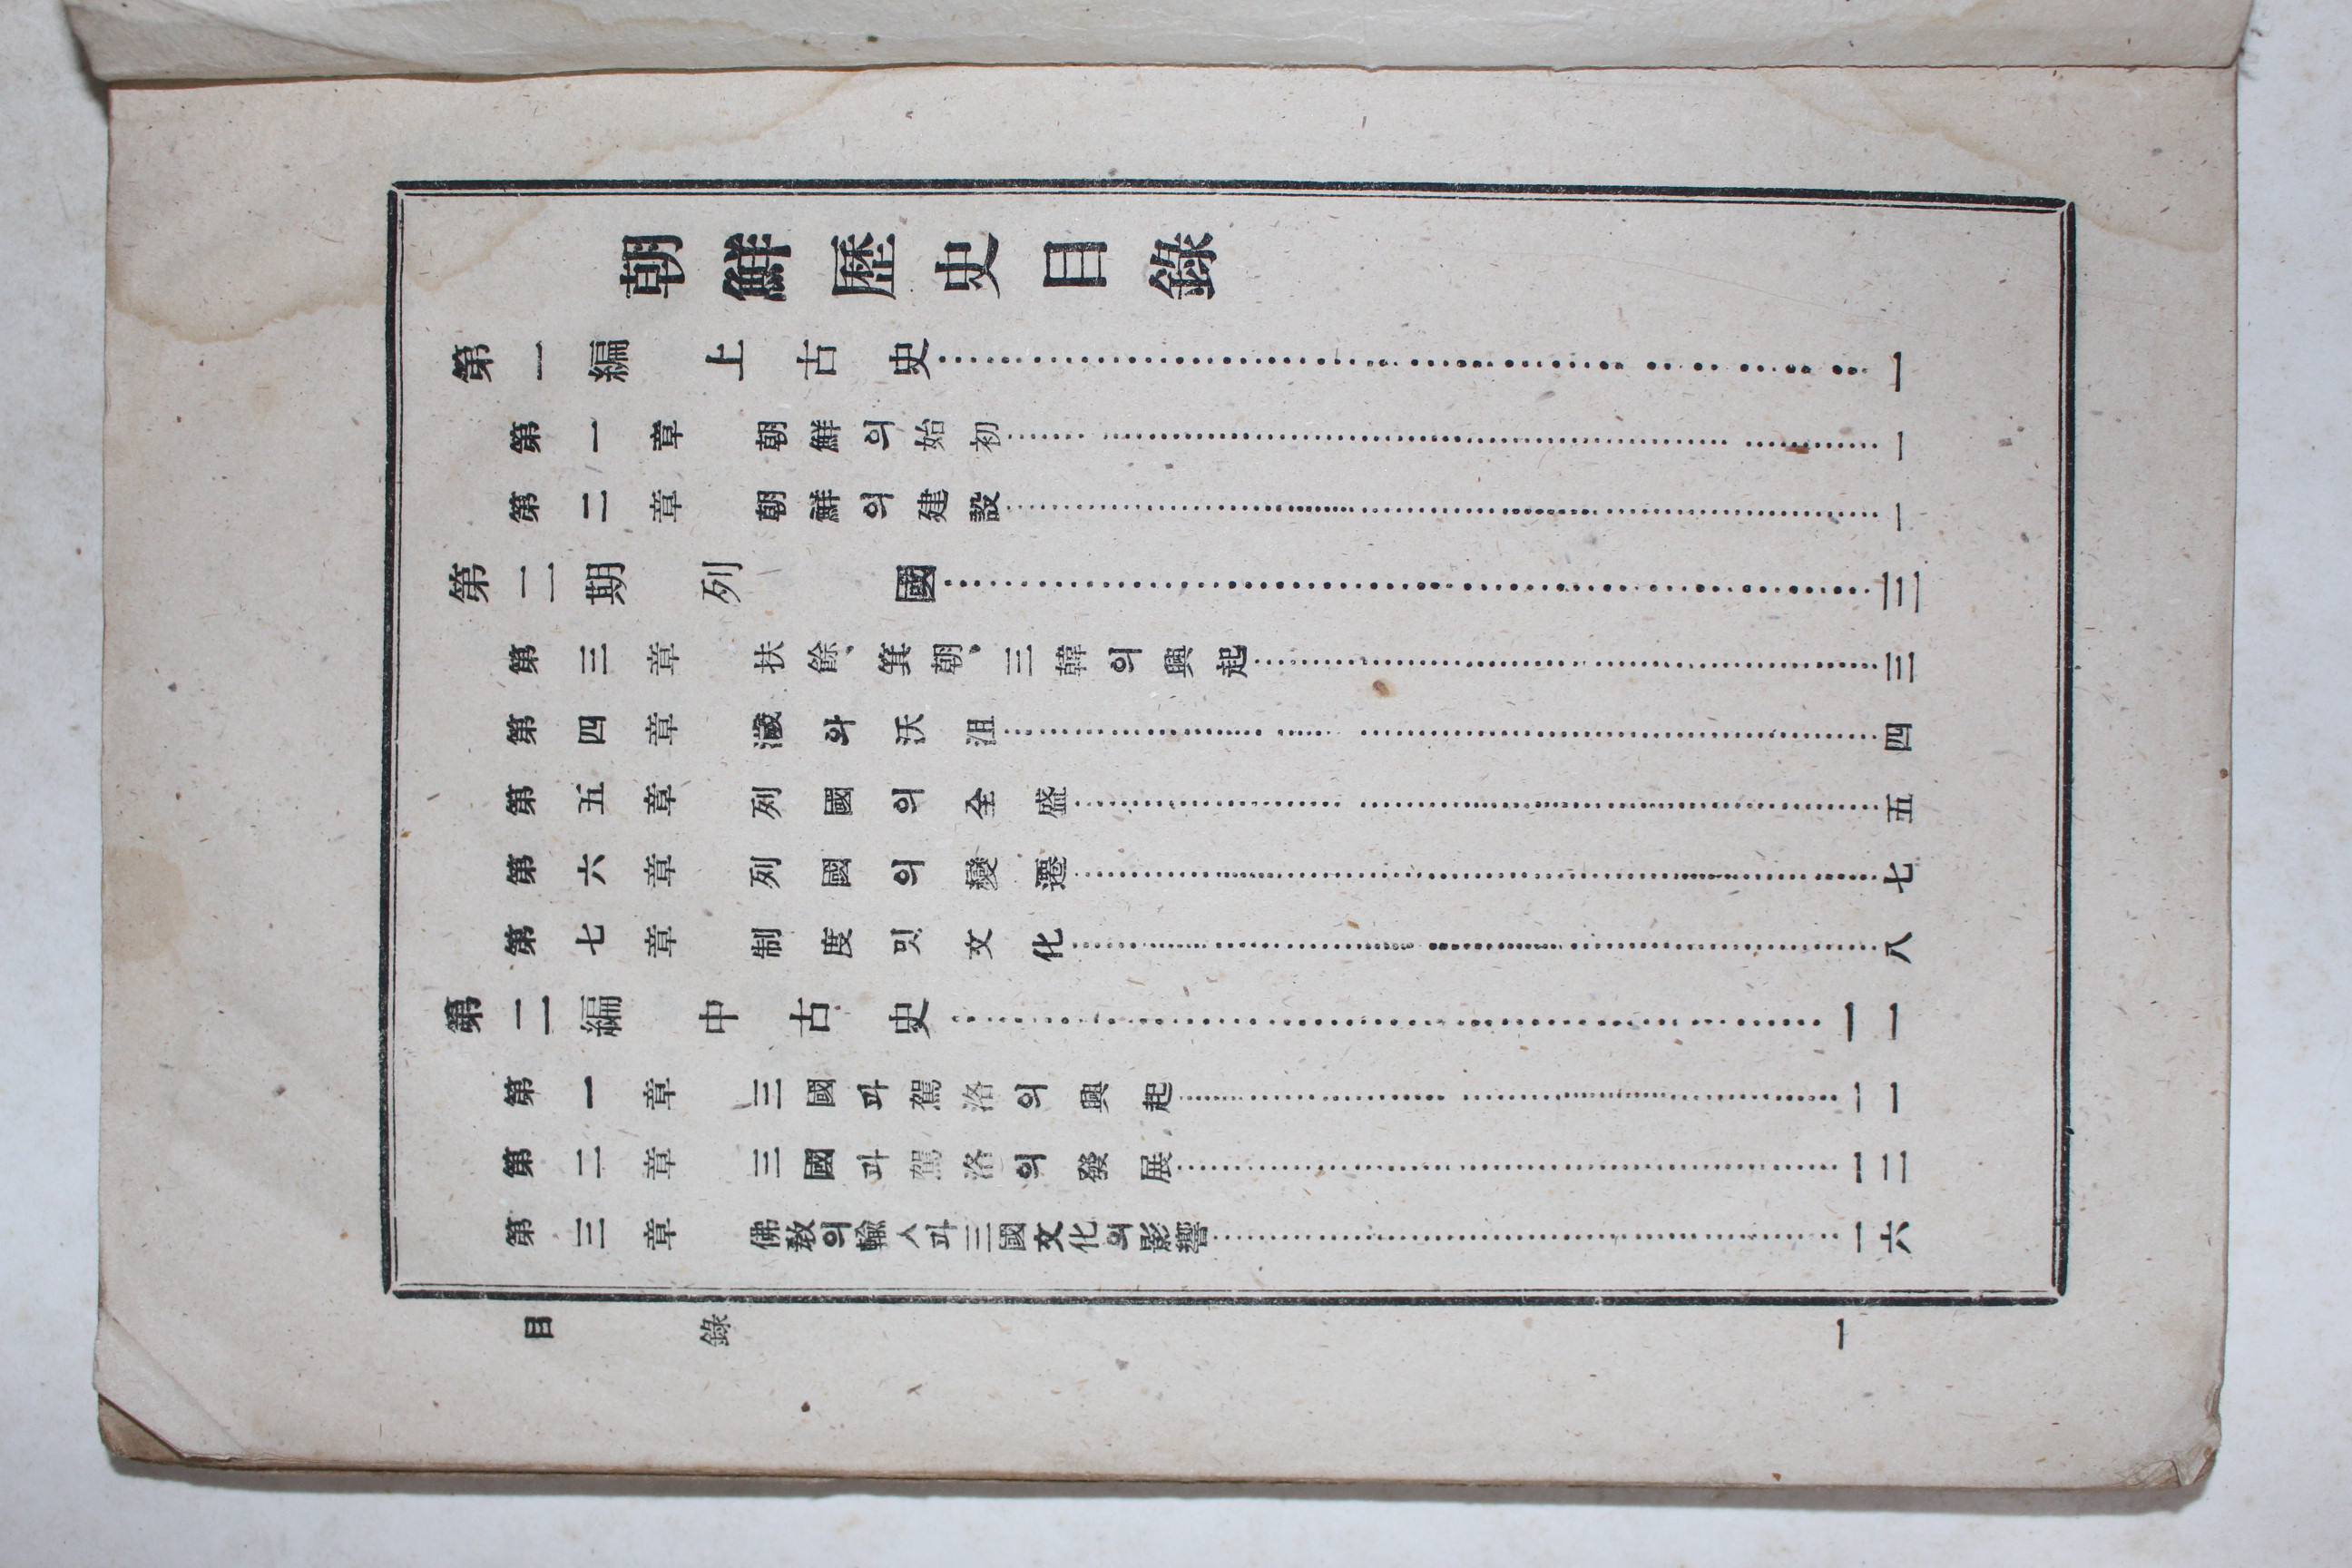 朝鮮歷史目錄
第一編 上古史……一
第一章 朝鮮의始初……一
第二章 朝鮮의建設……一
第二期 列國……三
第三章 扶餘、箕朝、三韓의興起……三
第四章 濊와沃沮……四
第五章 列國의全盛……五
第六章 列國의變遷……七
第七章 制度밋文化……八
第二編 中古史……一一
第一章 三國과駕洛의興起……一一
第二章 三國과駕洛의發展……一三
第三章 佛敎의輸入과三國文化의影響……一六
目錄 一